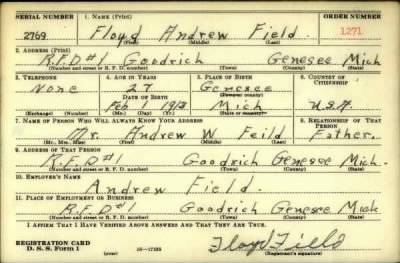 SERIAL NUMBER 1. NAME (Print) ORDER NUMBER
2769 Floyd Andrew Field. 1271
(First) (Middle) (Last)
2. ADDRESS (Print)
R.F.D#1 Goodrich Genesee Mich
(Number and street or R. F. D. number) (Town) (County) (State)
3. TELEPHONE 4. AGE IN YEARS 5. PLACE OF BIRTH 6. COUNTRY OF CITIZENSHIP
None 27 Genesee
DATE OF BIRTH (Town or county)
Feb 1 1913 Mich U.S.A.
(Exchange) (Number) (Mo.) (Day) (Yr.) (State or country)
7. NAME OF PERSON WHO WILL ALWAYS KNOW YOUR ADDRESS 8. RELATIONSHIP OF THAT PERSON
Mr. Andrew W Feild Father.
(Mr., Mrs., Miss) (First) (Middle) (Last)
9. ADDRESS OF THAT PERSON
R.F.D#1 Goodrich Genesee Mich.
(Number and street or R. F. D. number) (Town) (County) (State)
10. EMPLOYER'S NAME
Andrew Field.
11. PLACE OF EMPLOYMENT OR BUSINESS
R.F.D#1 Goodrich Genesee Mich
(Number and street or R. F. D. number) (Town) (County) (State)
I AFFIRM THAT I HAVE VERIFIED ABOVE ANSWERS AND THAT THEY ARE TRUE.
REGISTRATION CARD
D. S. S. Form 1 (over) Floyd Field
(Registrant's signature)